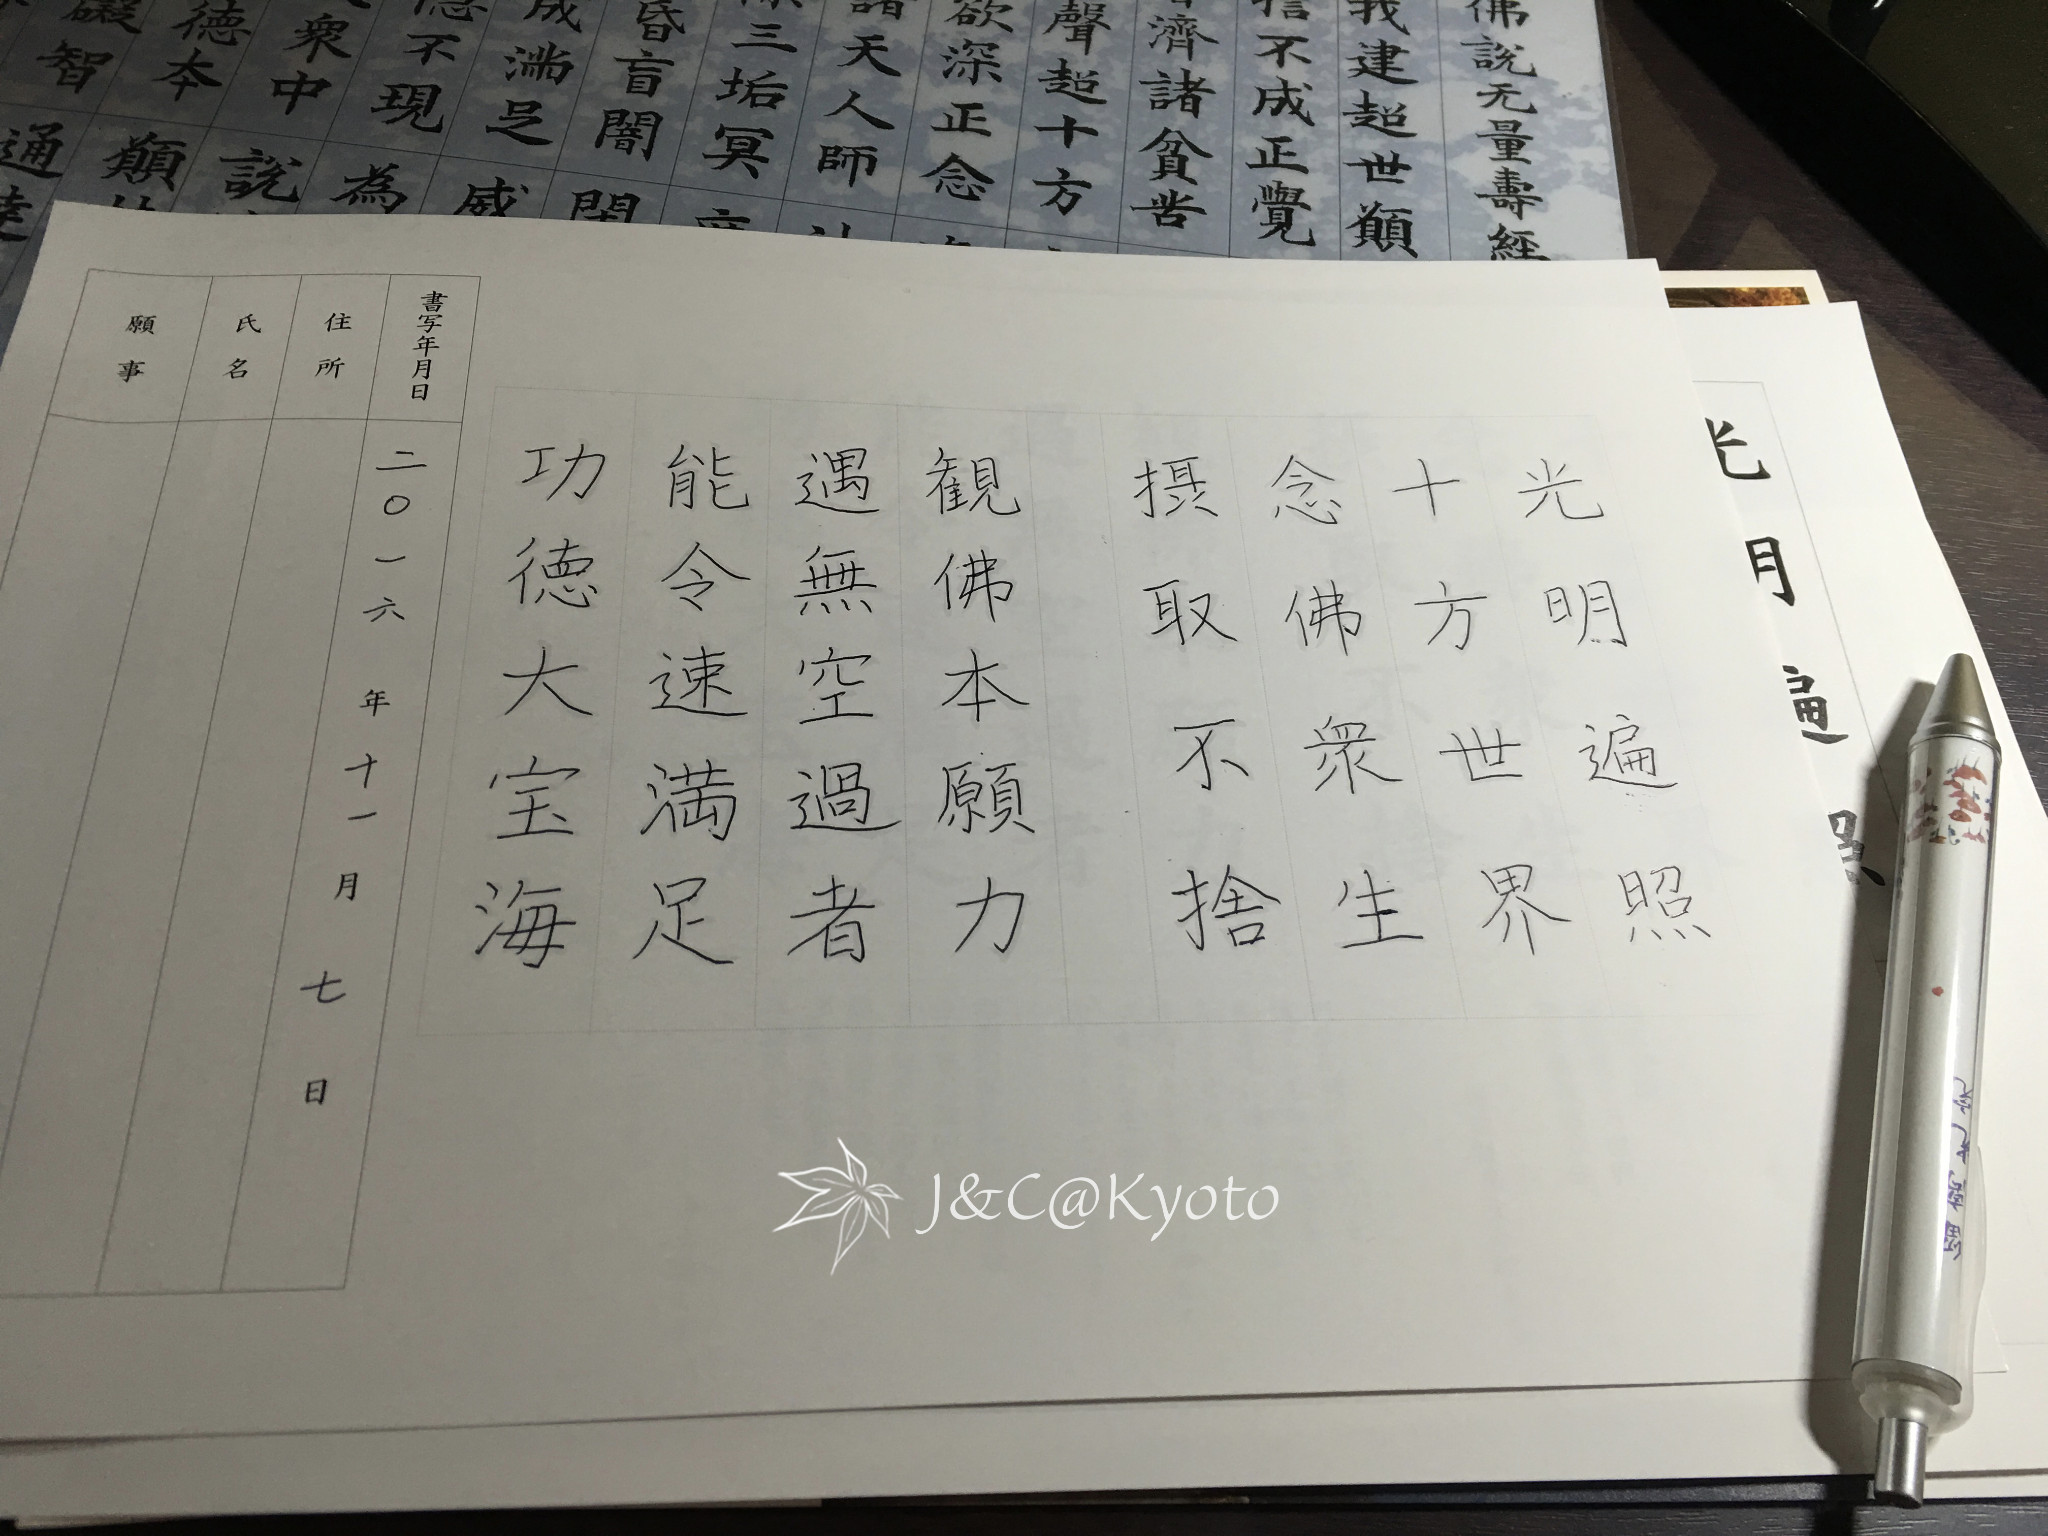 佛説无量壽經
我建超世願
不成正覺
濟諸貧苦
聲超十方
欲深正念
諸天人師
三垢冥
昏盲闇
成満足
不現
衆中
德本
礙智
為
説
願
通達
光明遍照
光明遍照
十方世界
念佛衆生
摂取不捨
観佛本願力
遇無空過者
能令速満足
功徳大宝海
書写年月日
二〇一六年十一月七日
住所
氏名
願事
J&C@Kyoto